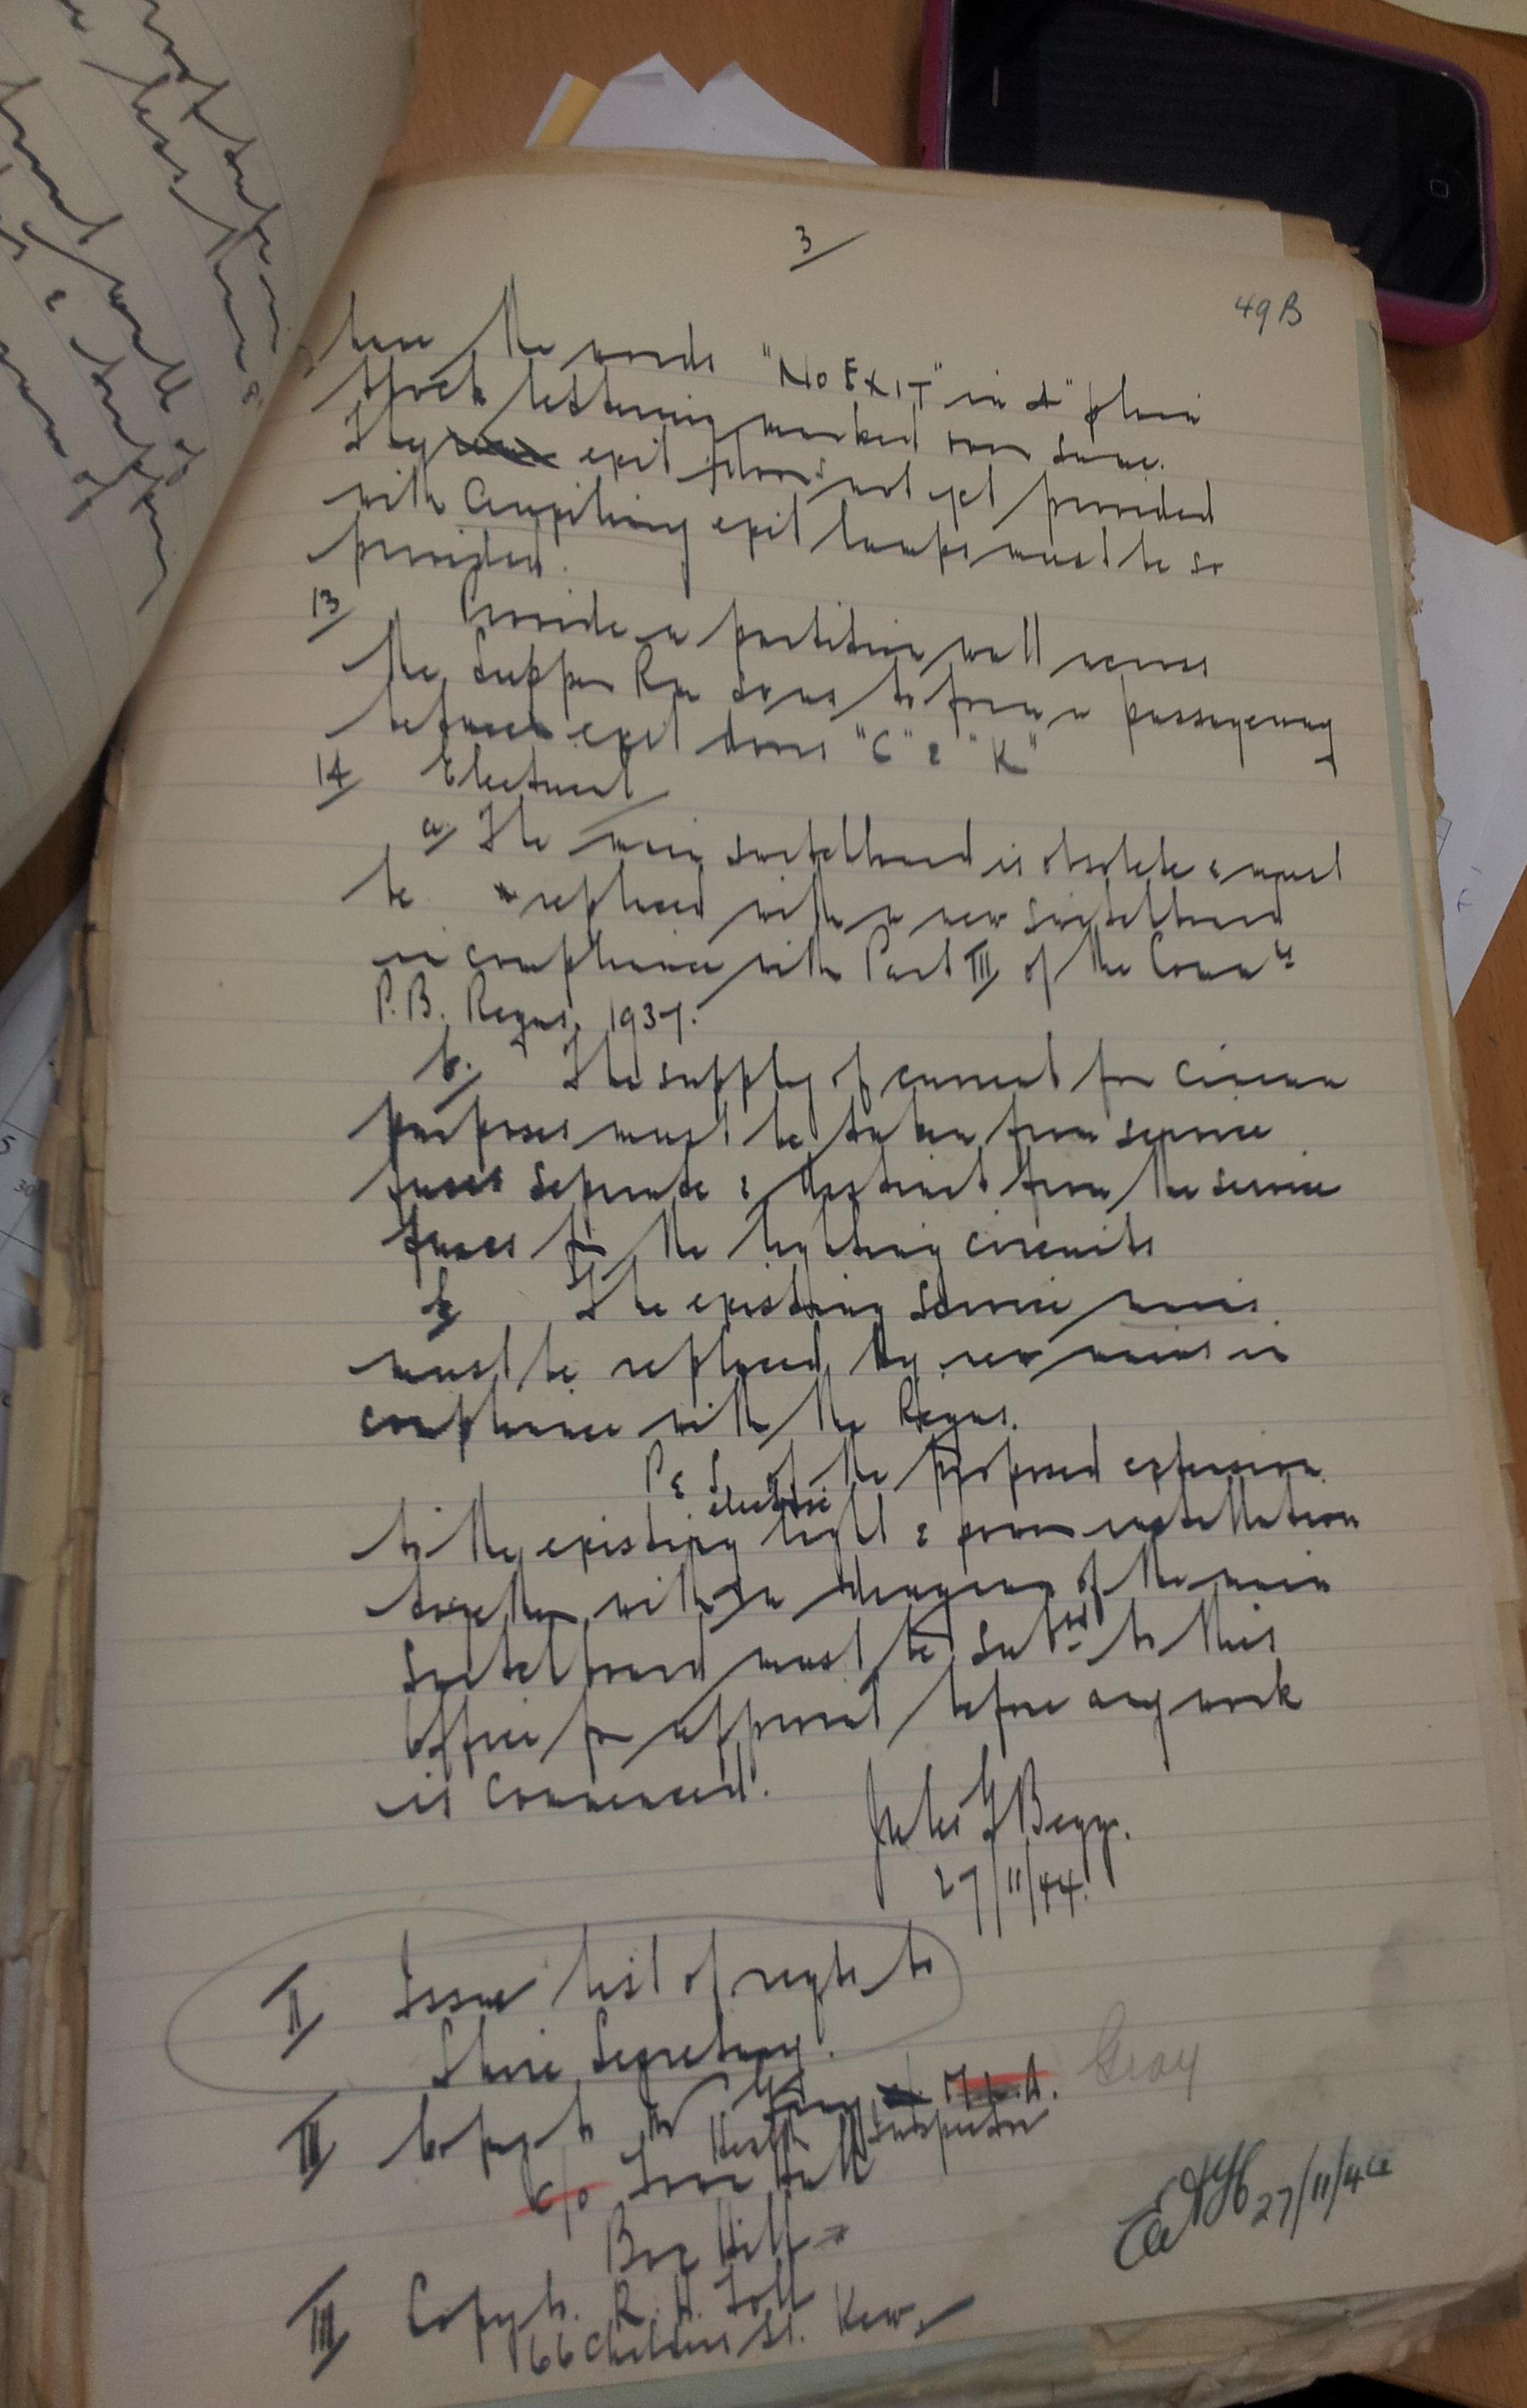 3
49B
have the words "NO EXIT" in 4" plain
block lettering marked over same.
The exit doors not yet provided
with exit lamps must be so
provided.
13 Provide a partition wall across
the Supper Rm so as to form a passageway
between exit doors "C" & "K"
14 Electrical
a/ The main switchboard is obsolete & must
be replaced with a new switchboard
in compliance with Part III of the Comm
P.B. Regns. 1937.
b. The supply of current for cinema
purposes must be taken from service
fuses separate & distinct from the service
fuses for the lighting circuits
The existing service mains
must be replaced by new mains in
compliance with the Regns.
P & S of the proposed extension
electric
to the existing light & power installation
together with a diagram of the main
switchboard must be subtd to this
Office for approval before any work
is commenced.
Begg.
27/11/44.
II Issue list of reqts to
Shire Secretary.
III Copy to Mr
Gray
Health Inspector
c/o Town Hall
Box Hill
III Copy to. R. H.
66 St. Kew.
27/11/44